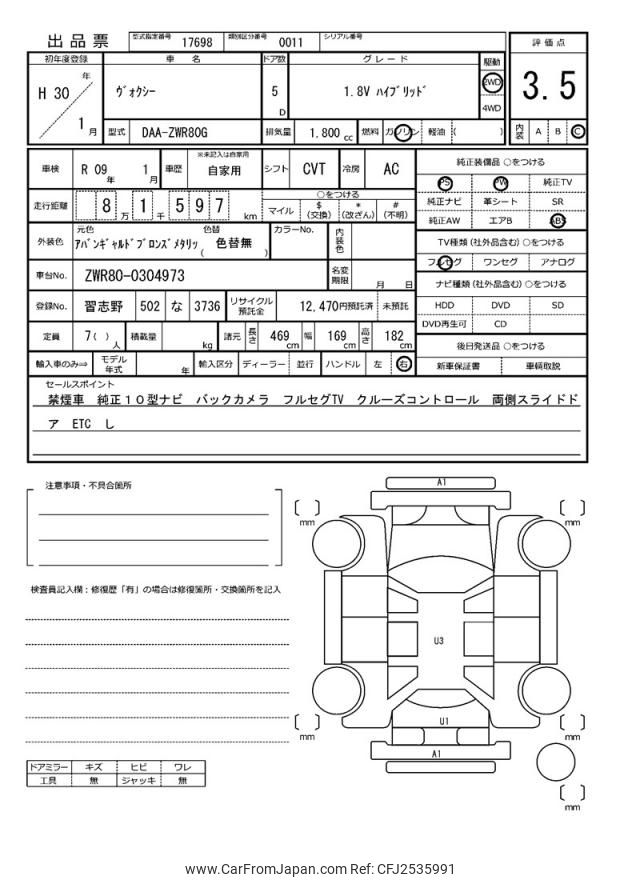 出品票
型式指定番号 17698 類別区分番号 0011 シリアル番号
評価点
3.5
内装 A B C
初年度登録 車名 ドア数 グレード 駆動
H 30 年 1 月
ヴォクシー 5 D 1.8V ハイブリッド 2WD 4WD
型式 DAA-ZWR80G 排気量 1,800 cc 燃料 ガソリン 軽油 ( )
車検 R 09 年 1 月 車歴 ※未記入は自家用 自家用 シフト CVT 冷房 AC
走行距離 8 万 1 千 5 9 7 km
○をつける
マイル $(交換) *(改ざん) #(不明)
外装色 元色 アバンギャルドブロンズメタリッ 色替 ( 色替無 ) カラーNo. 内装色
車台No. ZWR80-0304973 名変期限 月 日
登録No. 習志野 502 な 3736 リサイクル預託金 12,470円預託済 未預託
定員 7( ) 人 積載量 kg 諸元 長さ 469 cm 幅 169 cm 高さ 182 cm
輸入車のみ⇒ モデル年式 年 輸入区分 ディーラー 並行 ハンドル 左 右
純正装備品 ○をつける
PS PW 純正TV
純正ナビ 革シート SR
純正AW エアB ABS
TV種類 (社外品含む) ○をつける
フルセグ ワンセグ アナログ
ナビ種類 (社外品含む) ○をつける
HDD DVD SD
DVD再生可 CD
後日発送品 ○をつける
新車保証書 車輌取説
セールスポイント
禁煙車 純正10型ナビ バックカメラ フルセグTV クルーズコントロール 両側スライドド
ア ETC し
注意事項・不具合箇所
検査員記入欄：修復歴「有」の場合は修復箇所・交換箇所を記入
ドアミラー キズ ヒビ ワレ
工具 無 ジャッキ 無
A1
mm
mm
U3
U1
A1
mm
mm
mm
www.CarFromJapan.com Ref: CFJ2535991